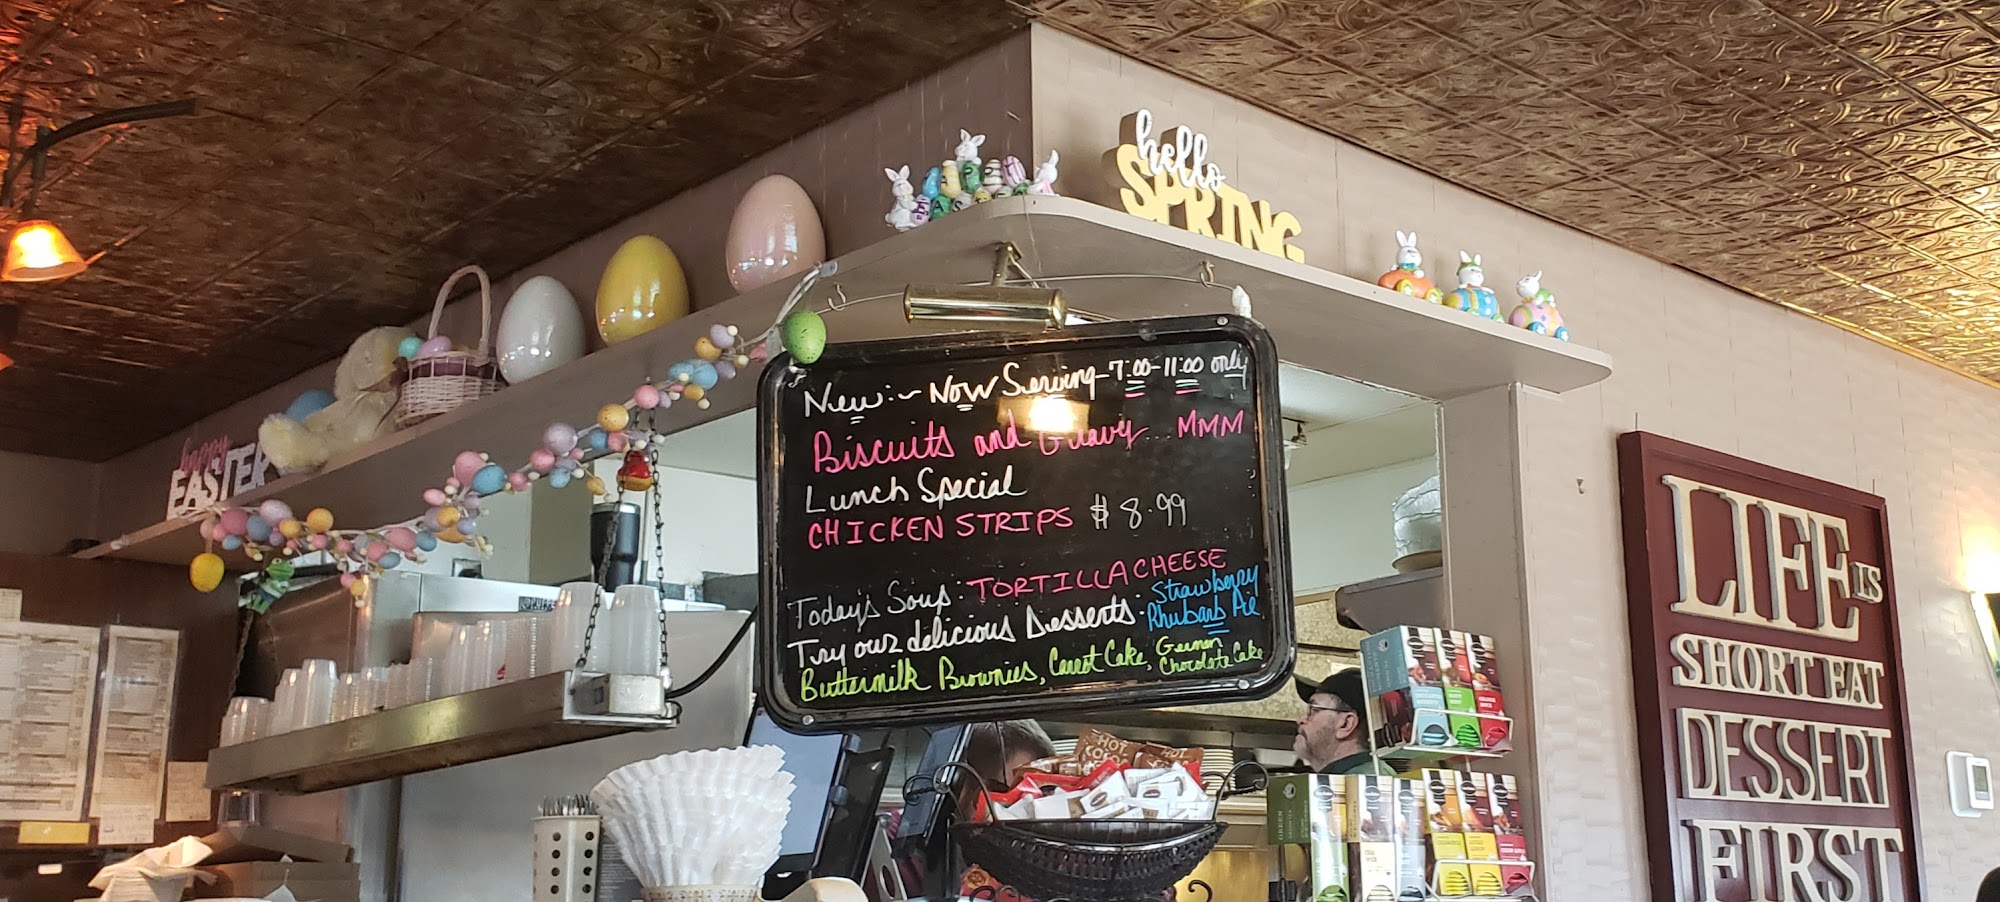 hello
SPRING
happy
EASTER
New:~ Now Serving-7:00-11:00 only
Biscuits and Gravy... MMM
Lunch Special
CHICKEN STRIPS $8.99
Today's Soup: TORTILLA CHEESE
Try our delicious Desserts: Strawberry
Rhubarb Pie
Buttermilk Brownies, Carrot Cake, German
Chocolate Cake
LIFE IS
SHORT EAT
DESSERT
FIRST
HOT